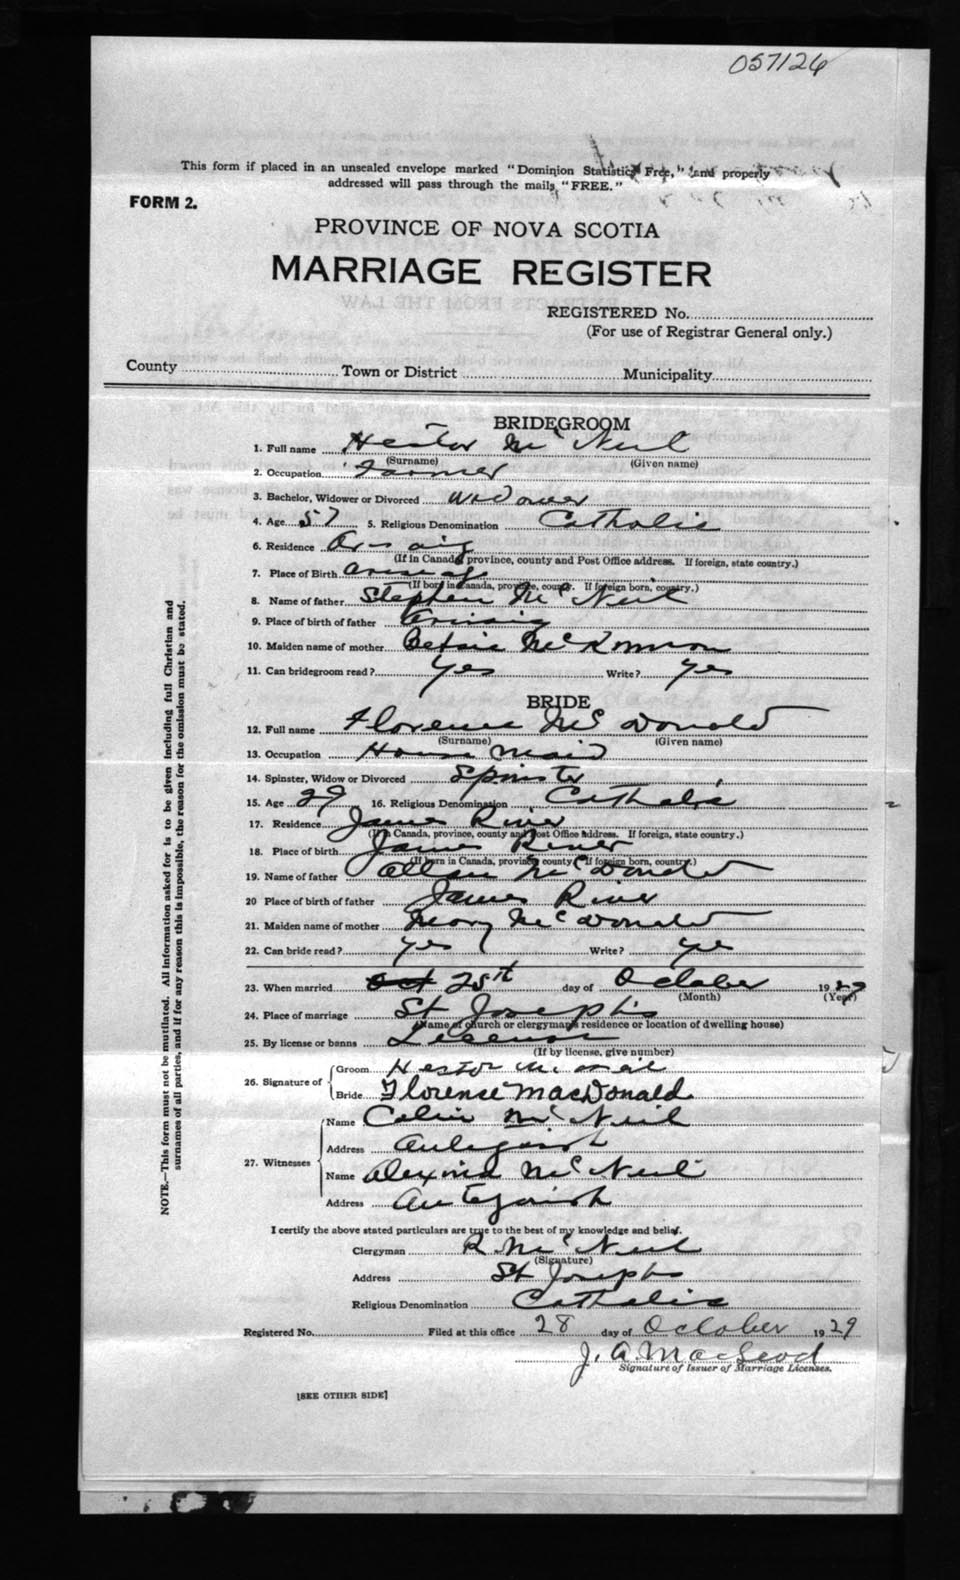 057126
This form if placed in an unsealed envelope marked "Dominion Statistics Free," and properly
addressed will pass through the mails "FREE."
FORM 2.
PROVINCE OF NOVA SCOTIA
MARRIAGE REGISTER
REGISTERED No.
(For use of Registrar General only.)
County Town or District Municipality
BRIDEGROOM
1. Full name Hector Mc Neil
(Surname) (Given name)
2. Occupation Farmer
3. Bachelor, Widower or Divorced Widower
4. Age 57 5. Religious Denomination Catholic
6. Residence Arisaig
(If in Canada, province, county and Post Office address. If foreign, state country.)
7. Place of Birth Arisaig
(If born in Canada, province, county. If foreign born, country.)
8. Name of father Stephen Mc Neil
9. Place of birth of father Arisaig
10. Maiden name of mother Betsie McKinnon
11. Can bridegroom read? yes Write? yes
BRIDE
12. Full name Florence Mc Donald
(Surname) (Given name)
13. Occupation House Maid
14. Spinster, Widow or Divorced Spinster
15. Age 29 16. Religious Denomination Catholic
17. Residence James River
(If in Canada, province, county and Post Office address. If foreign, state country.)
18. Place of birth James River
(If born in Canada, province county. If foreign born, country.)
19. Name of father Allan McDonald
20 Place of birth of father James River
21. Maiden name of mother Mary McDonald
22. Can bride read? yes Write? yes
23. When married Oct 25th day of October 1929
(Month) (Year)
24. Place of marriage St Joseph's
(Name of church or clergyman's residence or location of dwelling house)
25. By license or banns License
(If by license, give number)
26. Signature of Groom Hector McNeil
Bride Florence MacDonald
27. Witnesses Name Colin Mc Neil
Address Antigonish
Name Alexina McNeil
Address Antigonish
I certify the above stated particulars are true to the best of my knowledge and belief.
Clergyman R. McNeil
(Signature)
Address St Josephs
Religious Denomination Catholic
Registered No. Filed at this office 28 day of October 1929
J. A. MacLeod
Signature of Issuer of Marriage Licenses.
[SEE OTHER SIDE]
NOTE.—This form must not be mutilated. All information asked for is to be given including full Christian and
surnames of all parties, and if for any reason this is impossible, the reason for the omission must be stated.